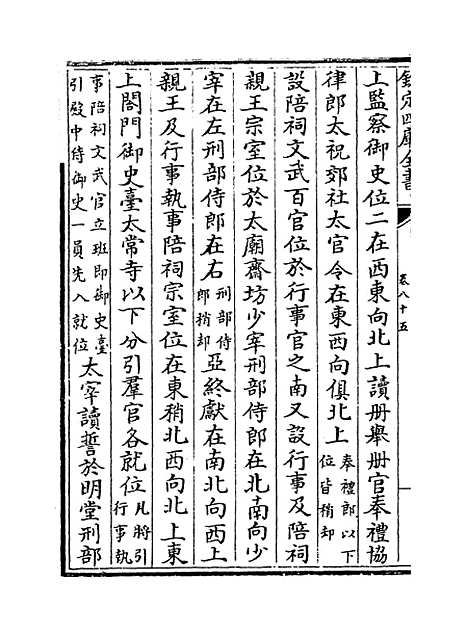 欽定四庫全書
卷八十五
上監察御史位二在西東向北上讀册舉册官奉禮協
律郎太祝郊社太官令在東西向俱北上奉禮郎以下位皆稍却
設陪祠文武百官位於行事官之南又設行事及陪祠
親王宗室位於太廟齋坊少宰刑部侍郎在北南向少
宰在左刑部侍郎在右刑部侍郎稍却亞終獻在南北向西上
親王及行事執事陪祠宗室位在東稍北西向北上東
上閤門御史臺太常寺以下分引羣官各就位凡將引行事執
事陪祠文武官立班即御史臺引殿中侍御史一員先入就位太宰讀誓於明堂刑部